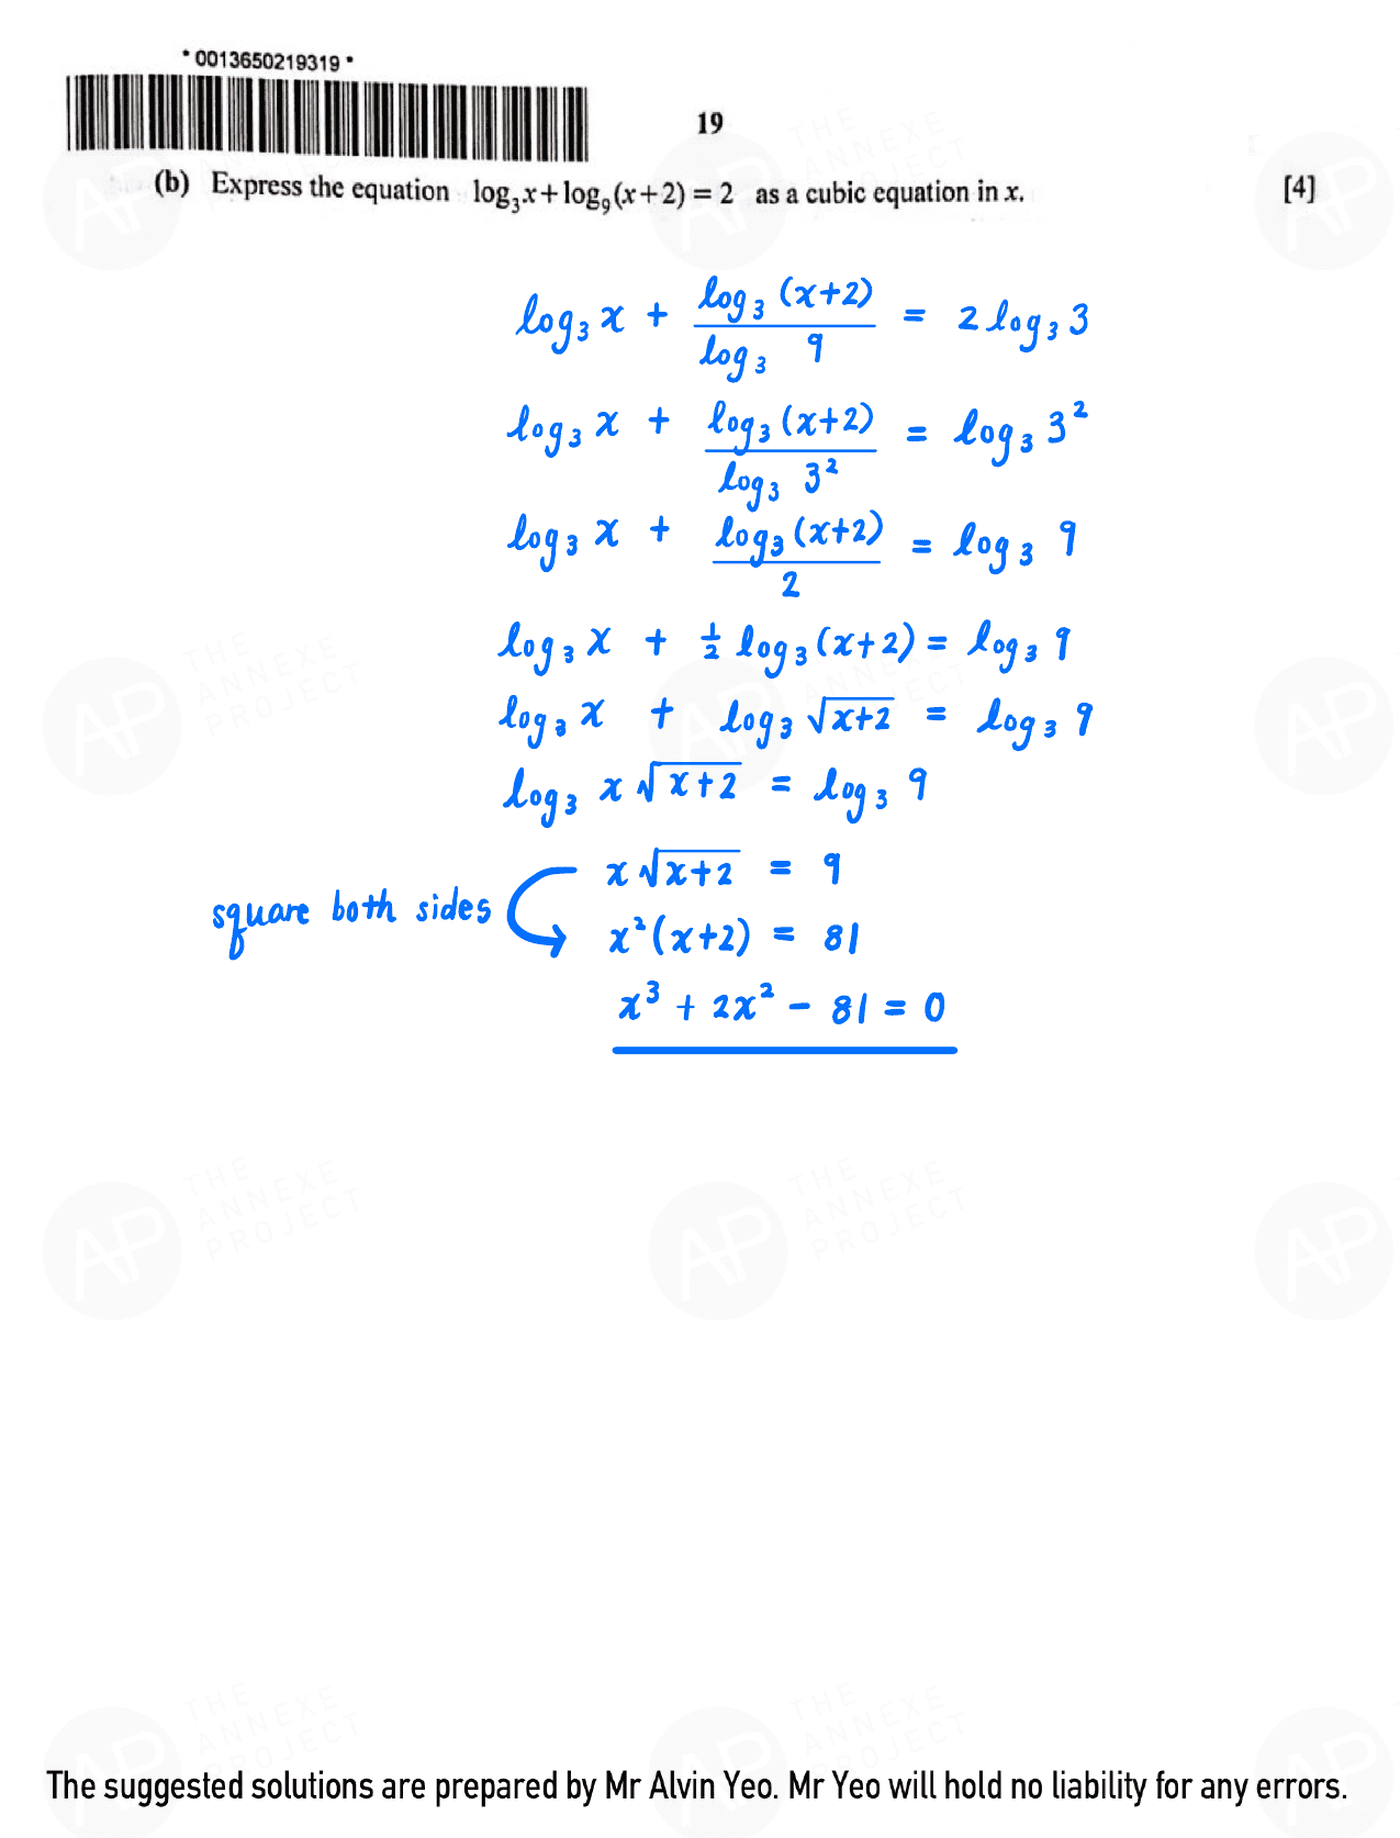 *0013650219319*
19
(b) Express the equation log₃x+log₉(x+2)=2 as a cubic equation in x. [4]
log₃ x + log₃ (x+2) / log₃ 9 = 2 log₃ 3
log₃ x + log₃ (x+2) / log₃ 3² = log₃ 3²
log₃ x + log₃ (x+2) / 2 = log₃ 9
log₃ x + ½ log₃ (x+2) = log₃ 9
log₃ x + log₃ √(x+2) = log₃ 9
log₃ x √(x+2) = log₃ 9
x √(x+2) = 9
square both sides x²(x+2) = 81
x³ + 2x² - 81 = 0
AP THE ANNEXE PROJECT
The suggested solutions are prepared by Mr Alvin Yeo. Mr Yeo will hold no liability for any errors.